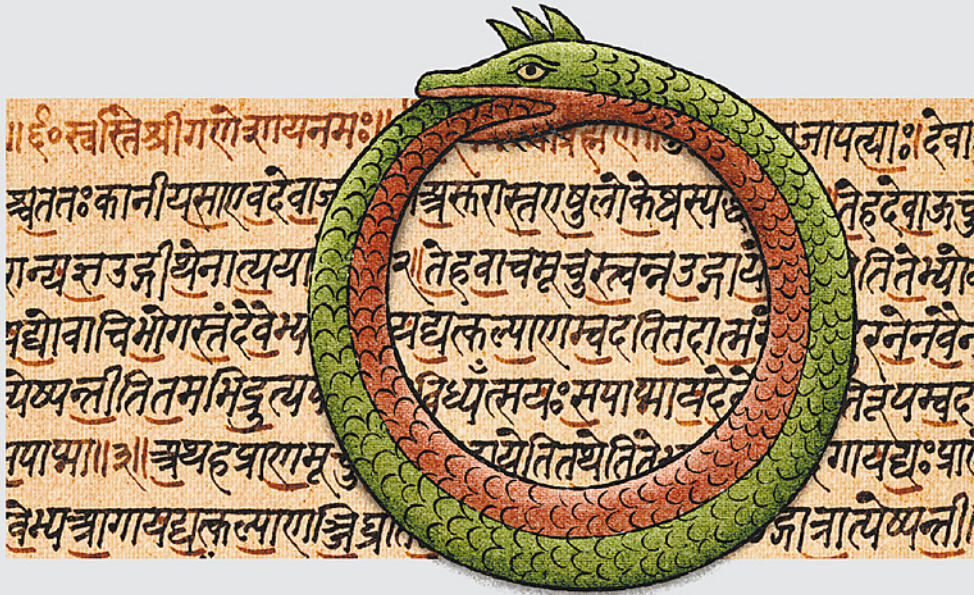 ॥६०स्वस्तिश्रीगणेशायनमः॥ जापत्याः॥देवा
श्चततःकानीयसाएवदेवाज असुरास्तएषुलोकेष्वस्प तेहदेवाऊचु
रान्यज्ञउद्गीथेनात्यया २॥तेहवाचमूचुस्त्वन्नउद्गाये तितेभ्यो
यद्योवाचिभोगस्तंदेवेभ्य यद्यत्कल्याणम्वदतितदात्म रनेनवैन
येष्यन्तीतितमभिद्रुत्य विध्यँत्सयःसपाप्मायदेवे म्वद
पाप्मा॥३॥अथहप्राणमूचु येतितथेतिते गायद्यःप्रा
वेभ्यआगायद्यत्कल्याणञ्जिघ्र गात्रात्येष्यन्ती